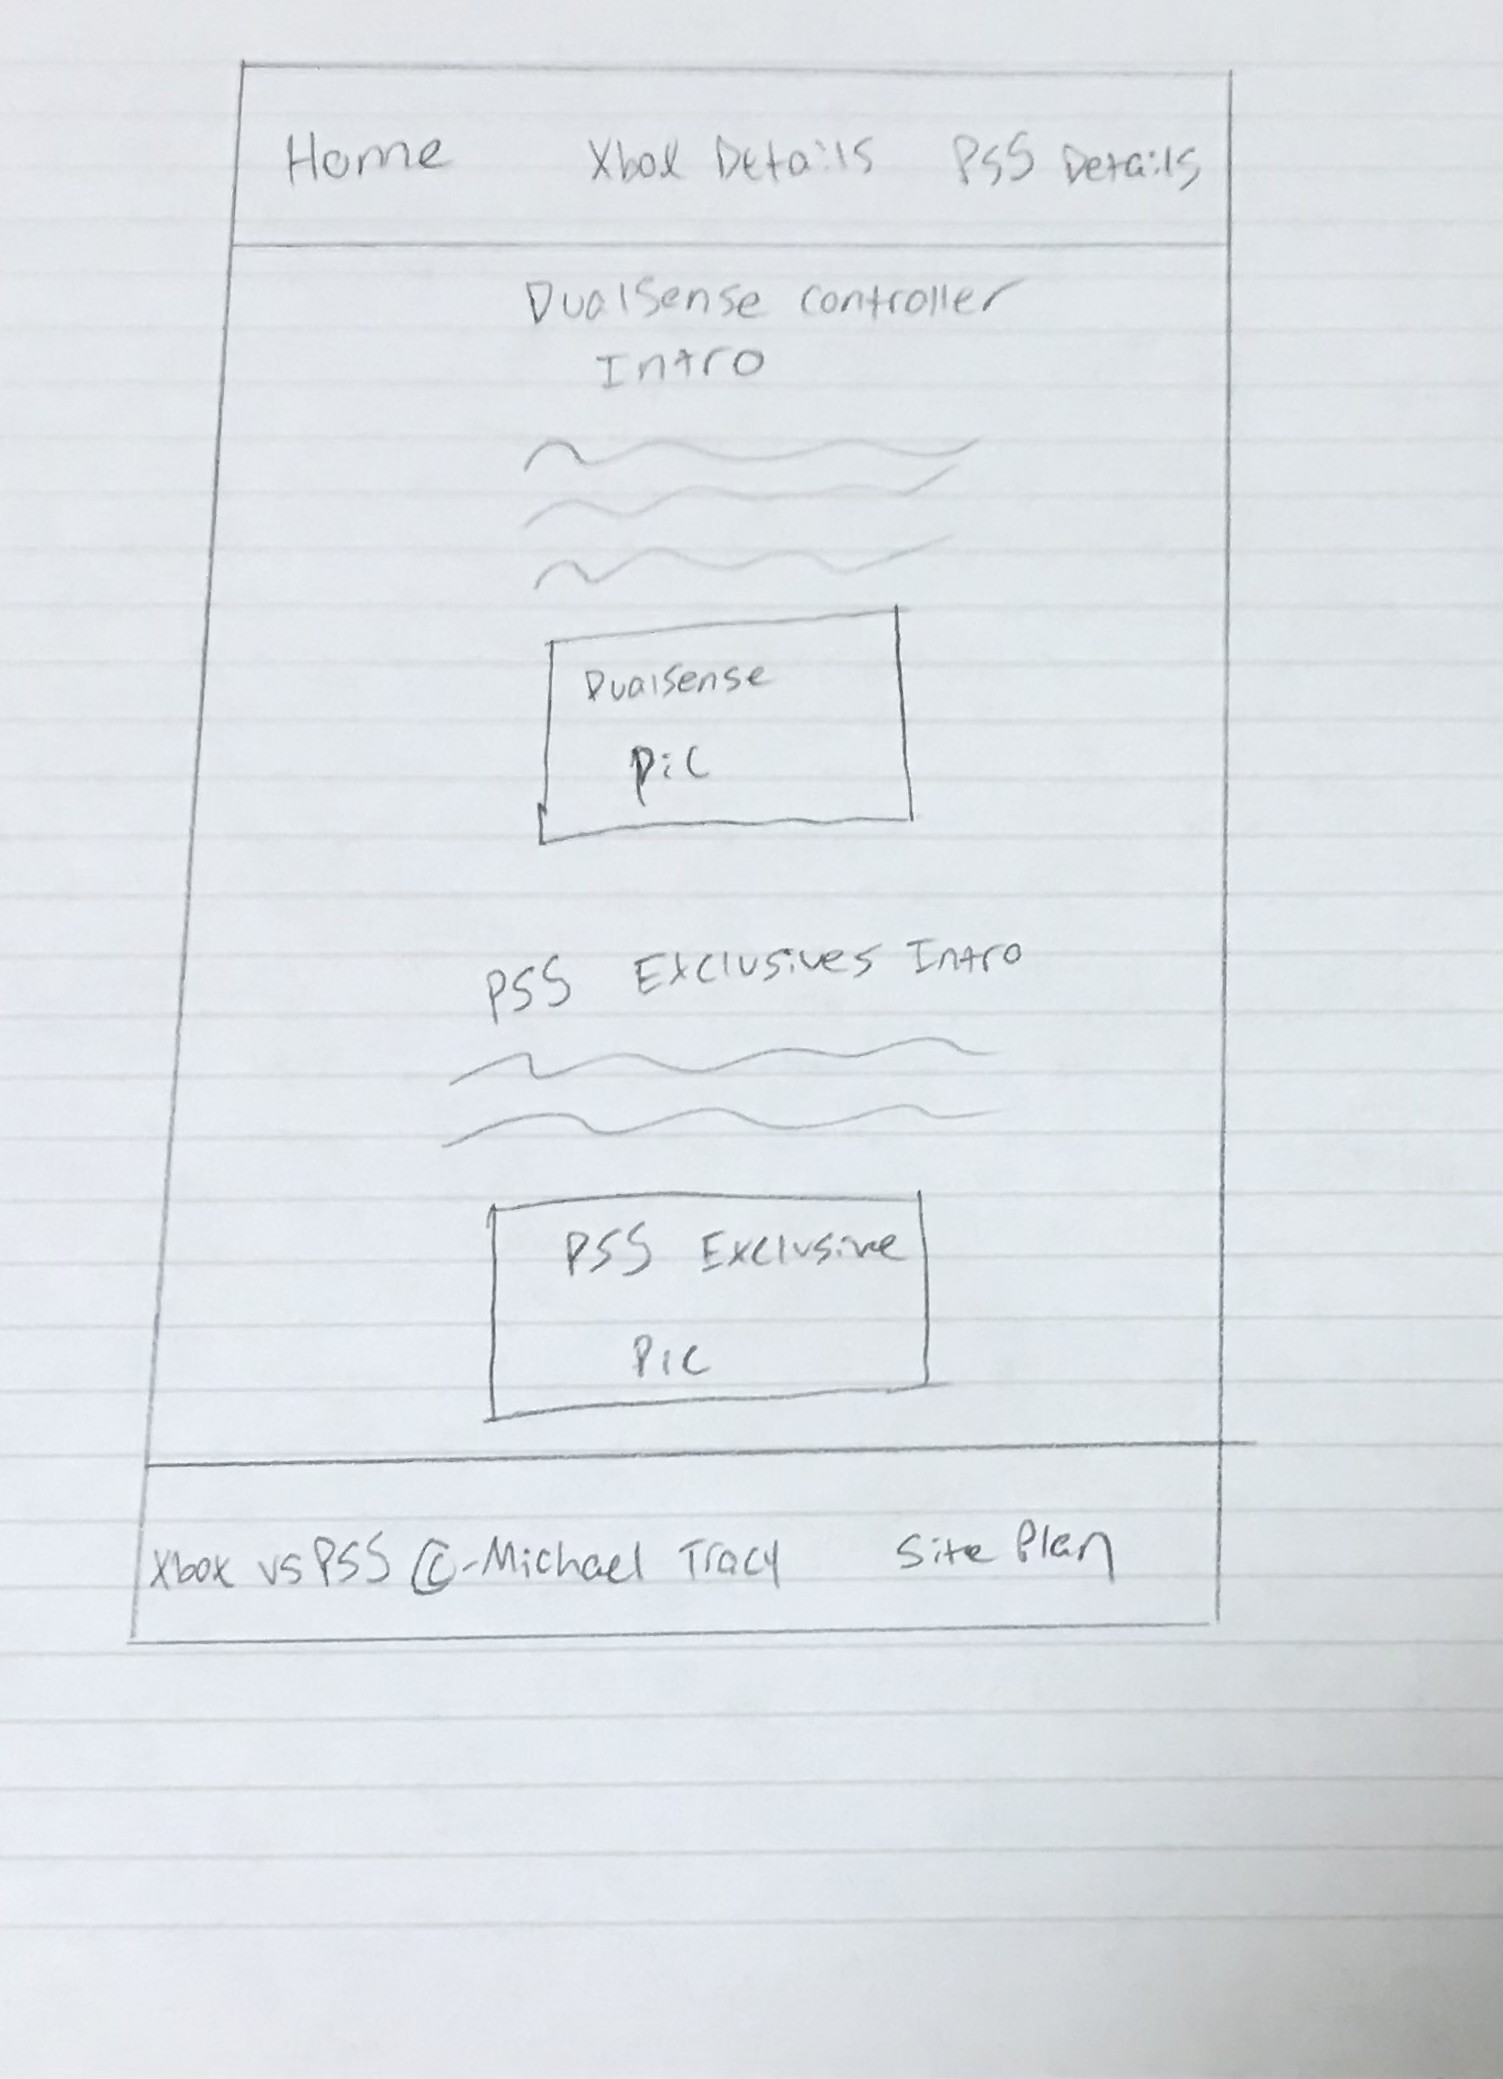 Home Xbox Details PS5 Details
DualSense controller
Intro
DualSense
Pic
PS5 Exclusives Intro
PS5 Exclusive
Pic
Xbox vs PS5 ©-Michael Tracy Site Plan